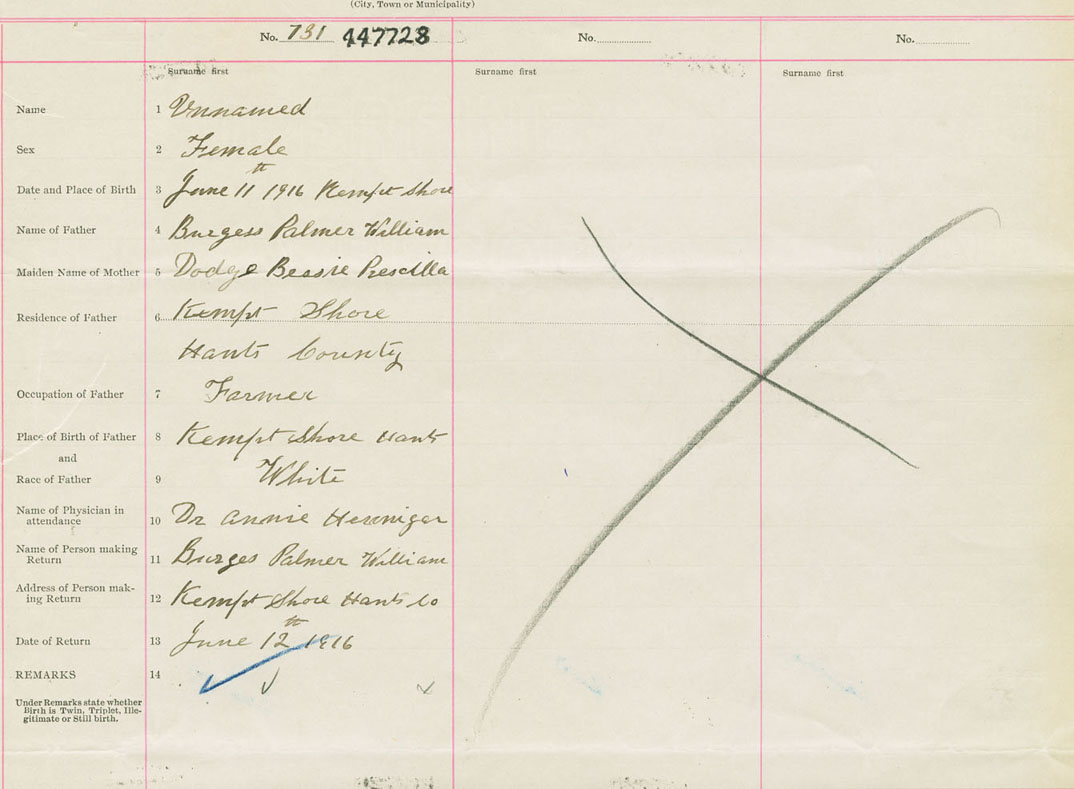 (City, Town or Municipality)
No. 731 447728 No. No.
Surname first Surname first Surname first
Name 1 Unnamed
Sex 2 Female
Date and Place of Birth 3 June 11th 1916 Kempt Shore
Name of Father 4 Burgess Palmer William
Maiden Name of Mother 5 Dodge Beasie Prescilla
Residence of Father 6 Kempt Shore
Hants County
Occupation of Father 7 Farmer
Place of Birth of Father 8 Kempt Shore Hants
and
Race of Father 9 White
Name of Physician in
attendance 10 Dr Annie Hennigar
Name of Person making
Return 11 Burges Palmer William
Address of Person mak-
ing Return 12 Kempt Shore Hants Co
Date of Return 13 June 12th 1916
REMARKS 14
Under Remarks state whether
Birth is Twin, Triplet, Ille-
gitimate or Still birth.